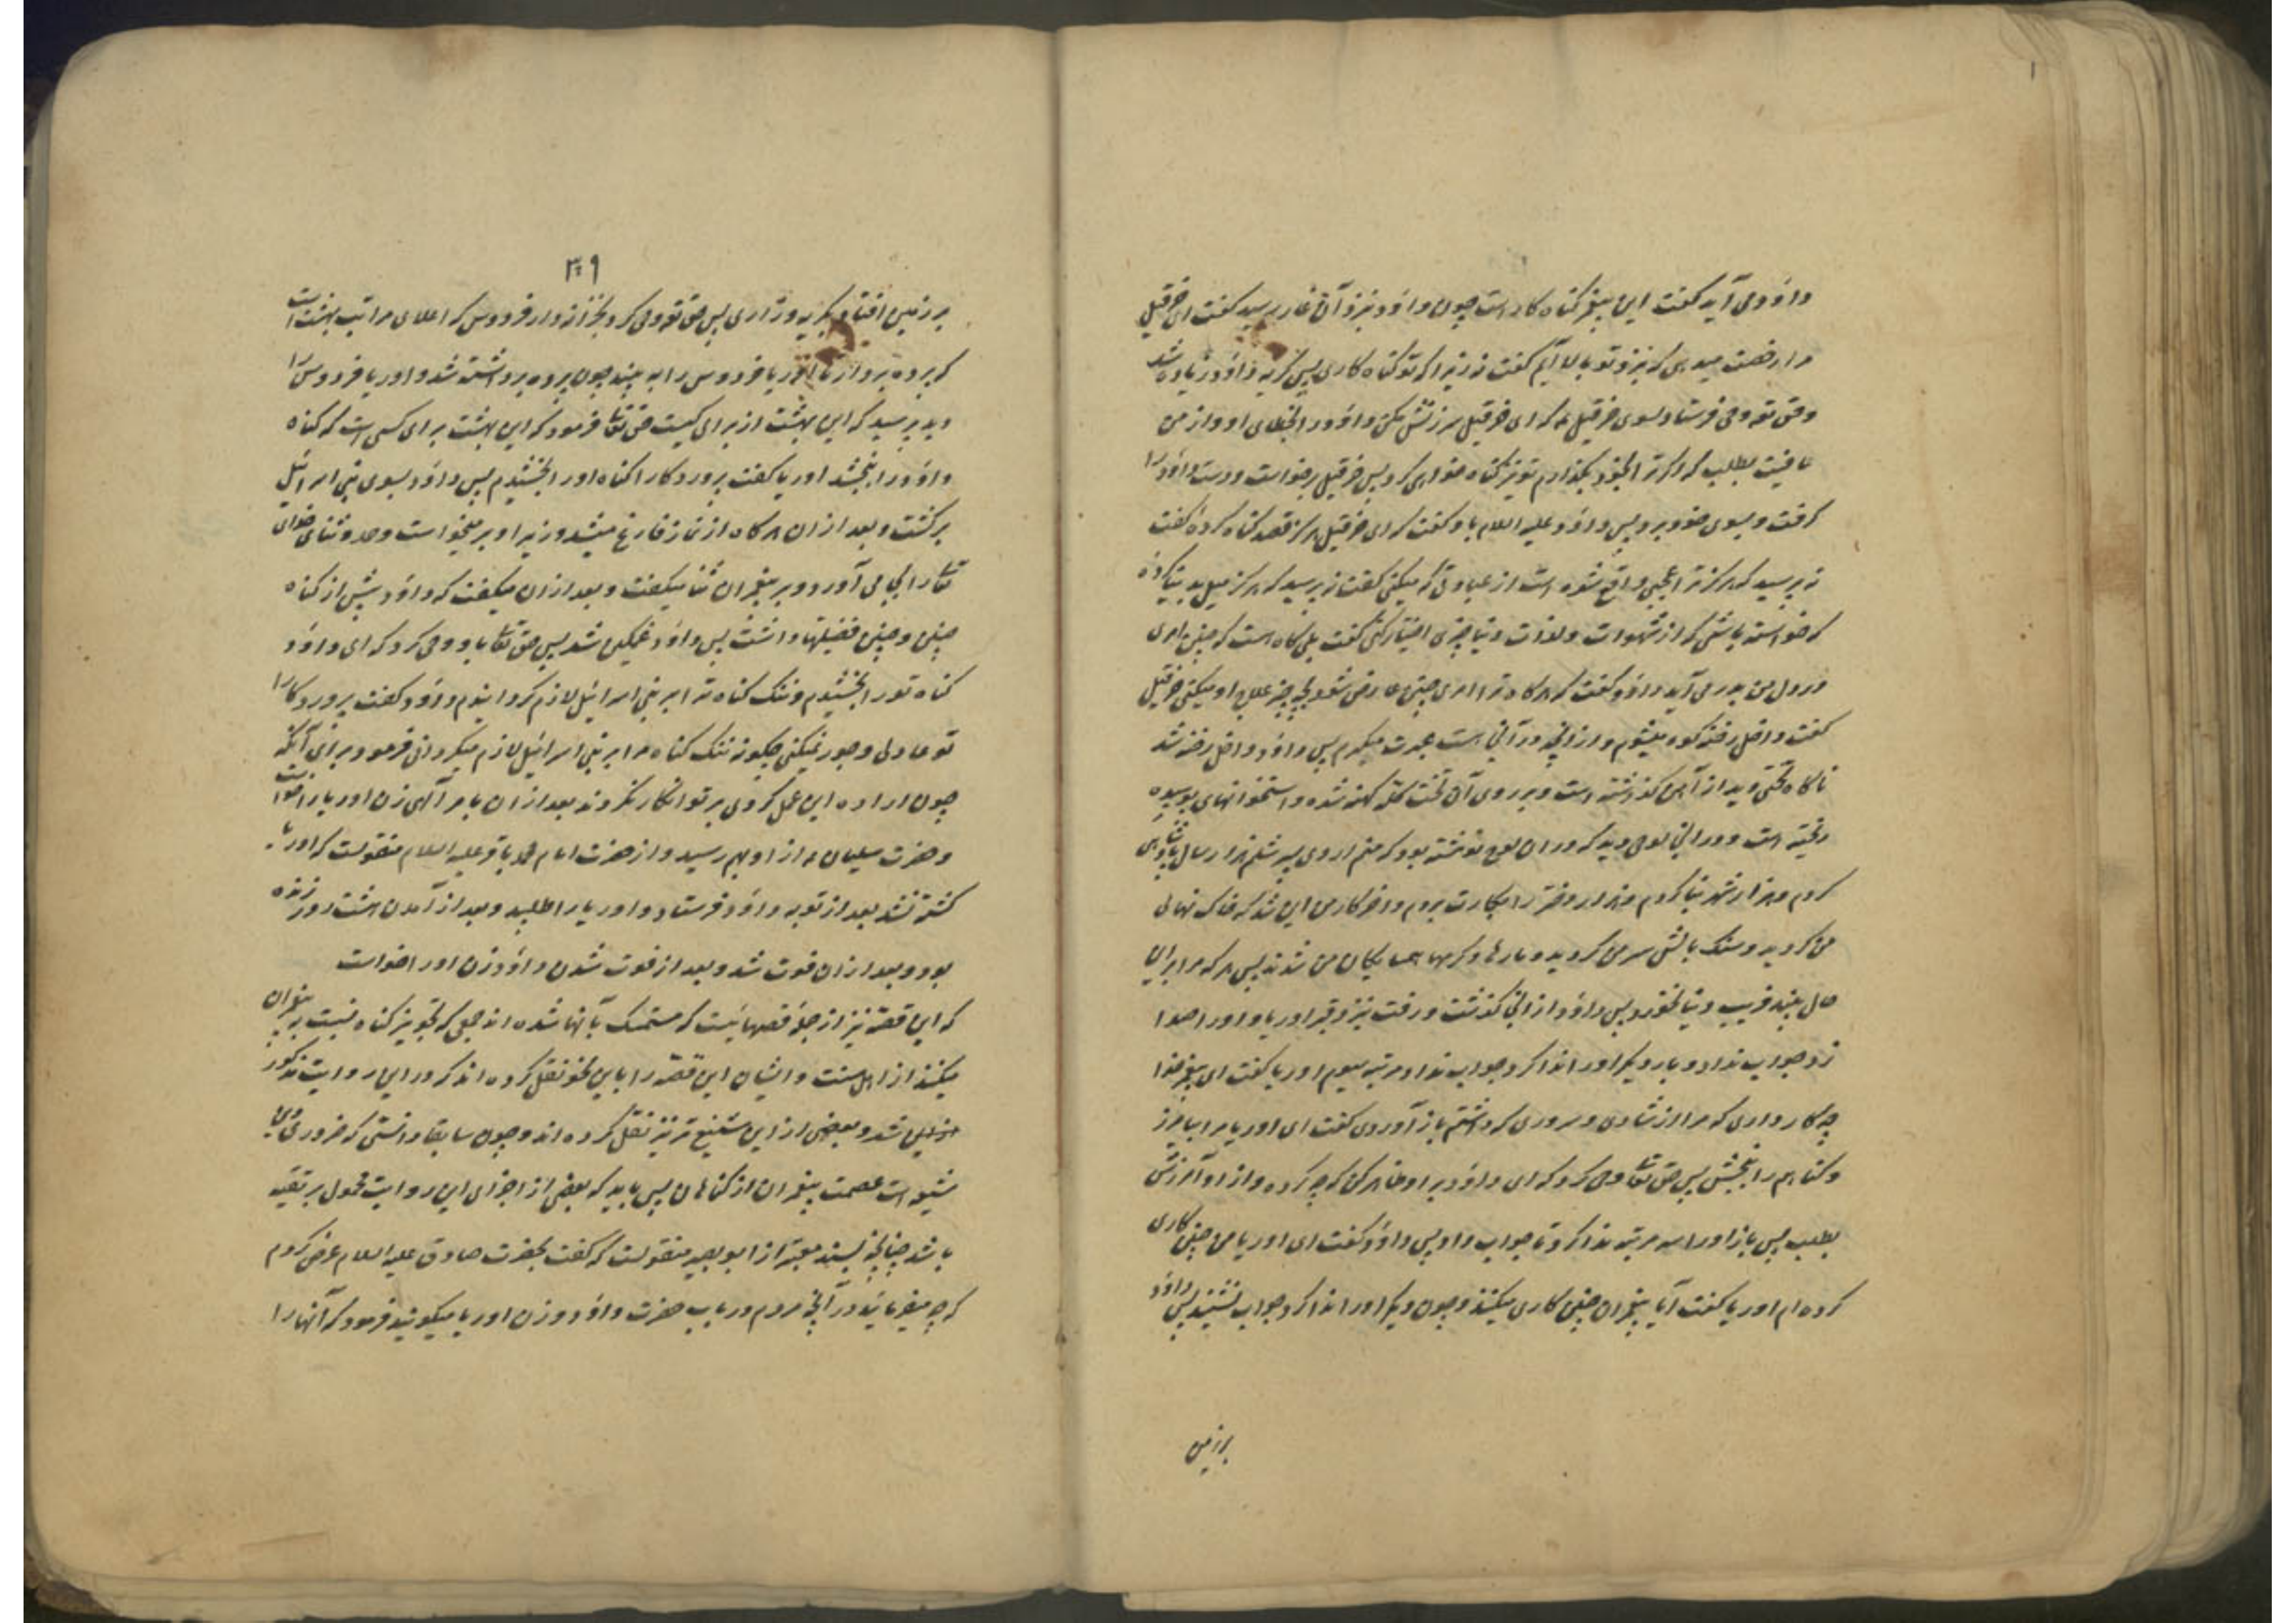 داود می آید گفت این پیغمبر گناه کار است چون داود بنزد آن غار رسید گفت ای خرقیل
مرا رخصت میدهی که بنزد تو بالا آیم گفت نه زیرا که تو گناه کاری پس گریه داود زیاده شد
و حق تع وحی فرستاد بسوی خرقیل ع که ای خرقیل سرزنش مکن داود را بخطای او و از من
عافیت بطلب که اگر ترا بخود بگذارم تو نیز گناه خواهی کرد پس خرقیل برخواست و دست داود را
گرفت و بسوی خود برد پس داود علیه السلام باو گفت که ای خرقیل هرگز قصد گناه کردهٔ گفت
نه پرسید که هرگز ترا عجبی واقع شده است از عبادتی که میکنی گفت نه پرسید که هرگز میل بدنیا کردهٔ
که خواسته باشی که از شهوات و لذات دنیا چیزی اختیار کنی گفت بلی گاه است که چنین امری
در دل من بدر می آید داود گفت که هرگاه ترا امری چنین عارض شود بچه چیز علاج او میکنی خرقیل
گفت داخل رخنه کوه میشوم و از آنچه در آنجا است عبرت میگیرم پس داود داخل رخنه شد
ناگاه تختی دید از آهن گذاشته است و بر روی آن تخت کله کهنه شده و استخوانهای پوسیده
ریخته است و در آنجا لوحی دید که در ان لوح نوشته بود که منم اروی پسر شلم هزار سال پادشاهی
کردم و هزار شهر بنا کردم و هزار دختر را بکارت بردم و اخر کار من این شد که خاک نهالی
من گردید و سنگ بالش سر من گردید و مارها و کرمها همسایگان من شدند پس هر که مرا باین
حال بیند فریب دنیا نخورد پس داود از آنجا گذشت و رفت بنزد قبر اوریا و او را صدا
زد جواب نداد و بار دیگر او را ندا کرد جواب نداد مرتبه سیوم اوریا گفت ای پیغمبر خدا
چکار داری که مرا از شادی و سروری که داشتم باز آوردی گفت ای اوریا مرا بیامرز
و گناهم را ببخش پس حق تعا وحی کرد که ای داود بر او ظاهر کن که چه کرده و از او آمرزش
بطلب پس باز او را سه مرتبه ندا کرد تا جواب داد پس داود گفت ای اوریا من چنین کاری
کرده ام اوریا گفت آیا پیغمبران چنین کاری میکنند و چون دیگر او را ندا کرد جواب نشنید پس داود
بر زمین
۳۰۹
بر زمین افتاد بگریه و زاری پس حق تع وحی کرد بخزانه دار فردوس که اعلای مراتب بهشت است
که پرده بردار تا اوریا فردوس را به بیند چون پرده برداشته شد و اوریا فردوس را
دید پرسید که این بهشت از برای کیست حق تعا فرمود که این بهشت برای کسی است که گناه
داود را ببخشد اوریا گفت پروردگارا گناه او را بخشیدم پس داود بسوی بنی اسرائیل
برگشت و بعد از ان هرگاه از نماز فارغ میشد وزیر او بر میخواست و حمد و ثنای خدای
تعا را بجا می آورد و بر پیغمبران ثنا میگفت و بعد از ان میگفت که داود پیش از گناه
چنین و چنین فضیلتها داشت پس داود غمگین شد پس حق تعا باو وحی کرد که ای داود
گناه تو را بخشیدم و ننگ گناه ترا بر بنی اسرائیل لازم گردانیدم داود گفت پروردگارا
تو عادلی و جور نمیکنی چگونه ننگ گناه مرا بر بنی اسرائیل لازم میگردانی فرمود برای آنکه
چون اراده این عمل کردی بر تو انکار نکردند بعد از ان بامر آلهی زن اوریا را خواست
و حضرت سلیمان ع از او بهم رسید و از حضرت امام محمد باقر علیه السلام منقولست که اوریا
کشته نشد بعد از توبه داود فرستاد و اوریا را طلبید و بعد از آمدن هشت روز زنده
بود و بعد از ان فوت شد و بعد از فوت شدن داود زن او را خواست
که این قصه نیز از جمله قصهائیست که متمسک بآنها شده اند جمعی که تجویز گناه نسبت به پیغمبران
میکنند از اهل سنت و ایشان این قصه را باین نحو نقل کرده اند که در این روایت مذکور
شد و بعضی از این شنیع تر نیز نقل کرده اند و چون سابقا دانستی که ضروری دین
شیعه است عصمت پیغمبران از گناهان پس باید که بعضی از اجزای این روایت محمول بر تقیه
باشد چنانچه بسند معتبر از ابو بصیر منقولست که گفت بحضرت صادق علیه السلام عرض کردم
که چه میفرمائید در آنچه مردم در باب حضرت داود و زن اوریا میگویند فرمود که آنها را